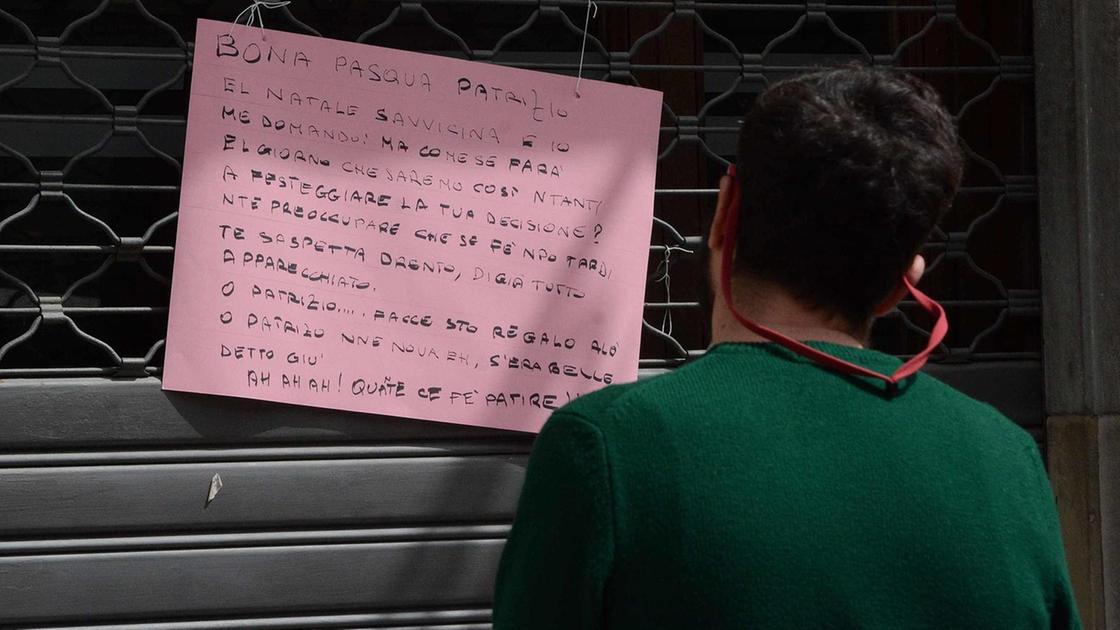 BONA PASQUA PATRIZIO
EL NATALE SAVVICINA E IO
ME DOMANDO: MA COME SE FARÀ
EL GIORNO CHE SAREMO COSÌ NTANTI
A FESTEGGIARE LA TUA DECISIONE?
NTE PREOCCUPARE CHE SE FÈ NPO TARDI
TE SASPETTA DRENTO, DIGIÀ TUTTO
APPARECCHIATO.
O PATRIZIO..... FACCE STO REGALO ALÒ
O PATRIZO NNE NOVA EH, S'ERA BELLE
DETTO GIÙ
AH AH AH! CE FÈ PATIRE